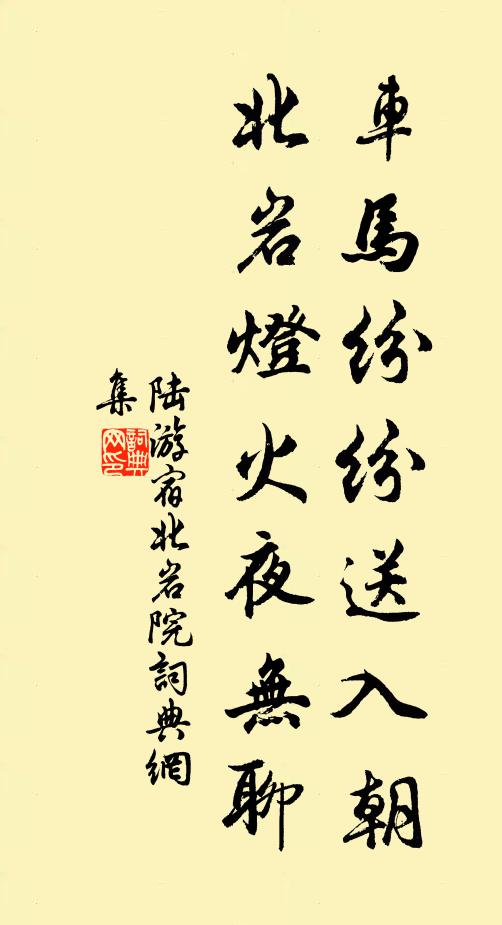 車馬紛紛送入朝
北岩燈火夜無聊
陆游宿北岩院詞典網
集
詞典網印